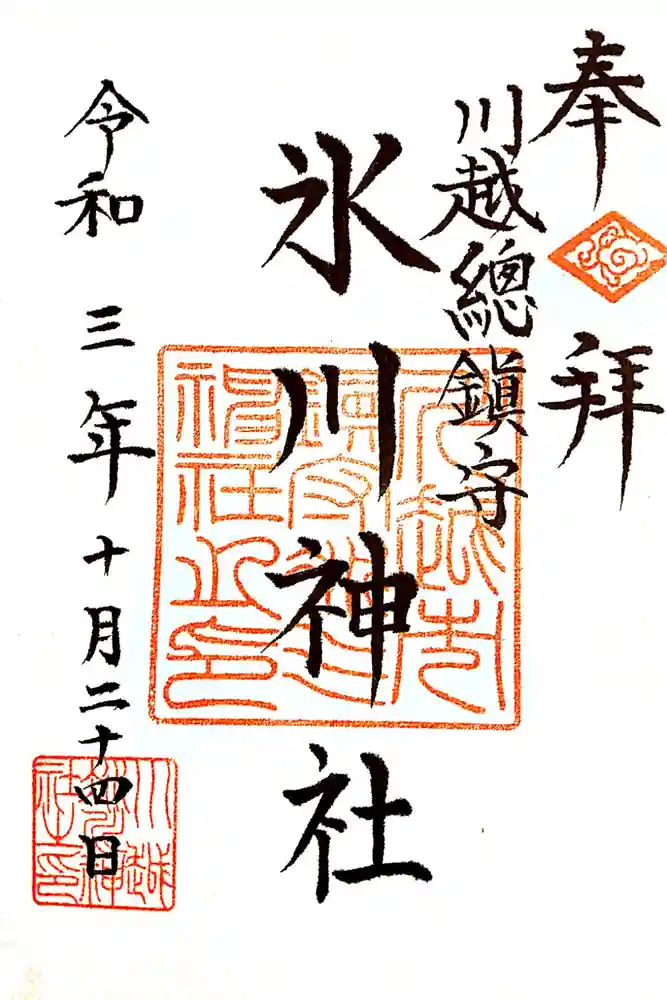 奉拝
川越總鎮守
氷川神社
令和三年十月二十四日